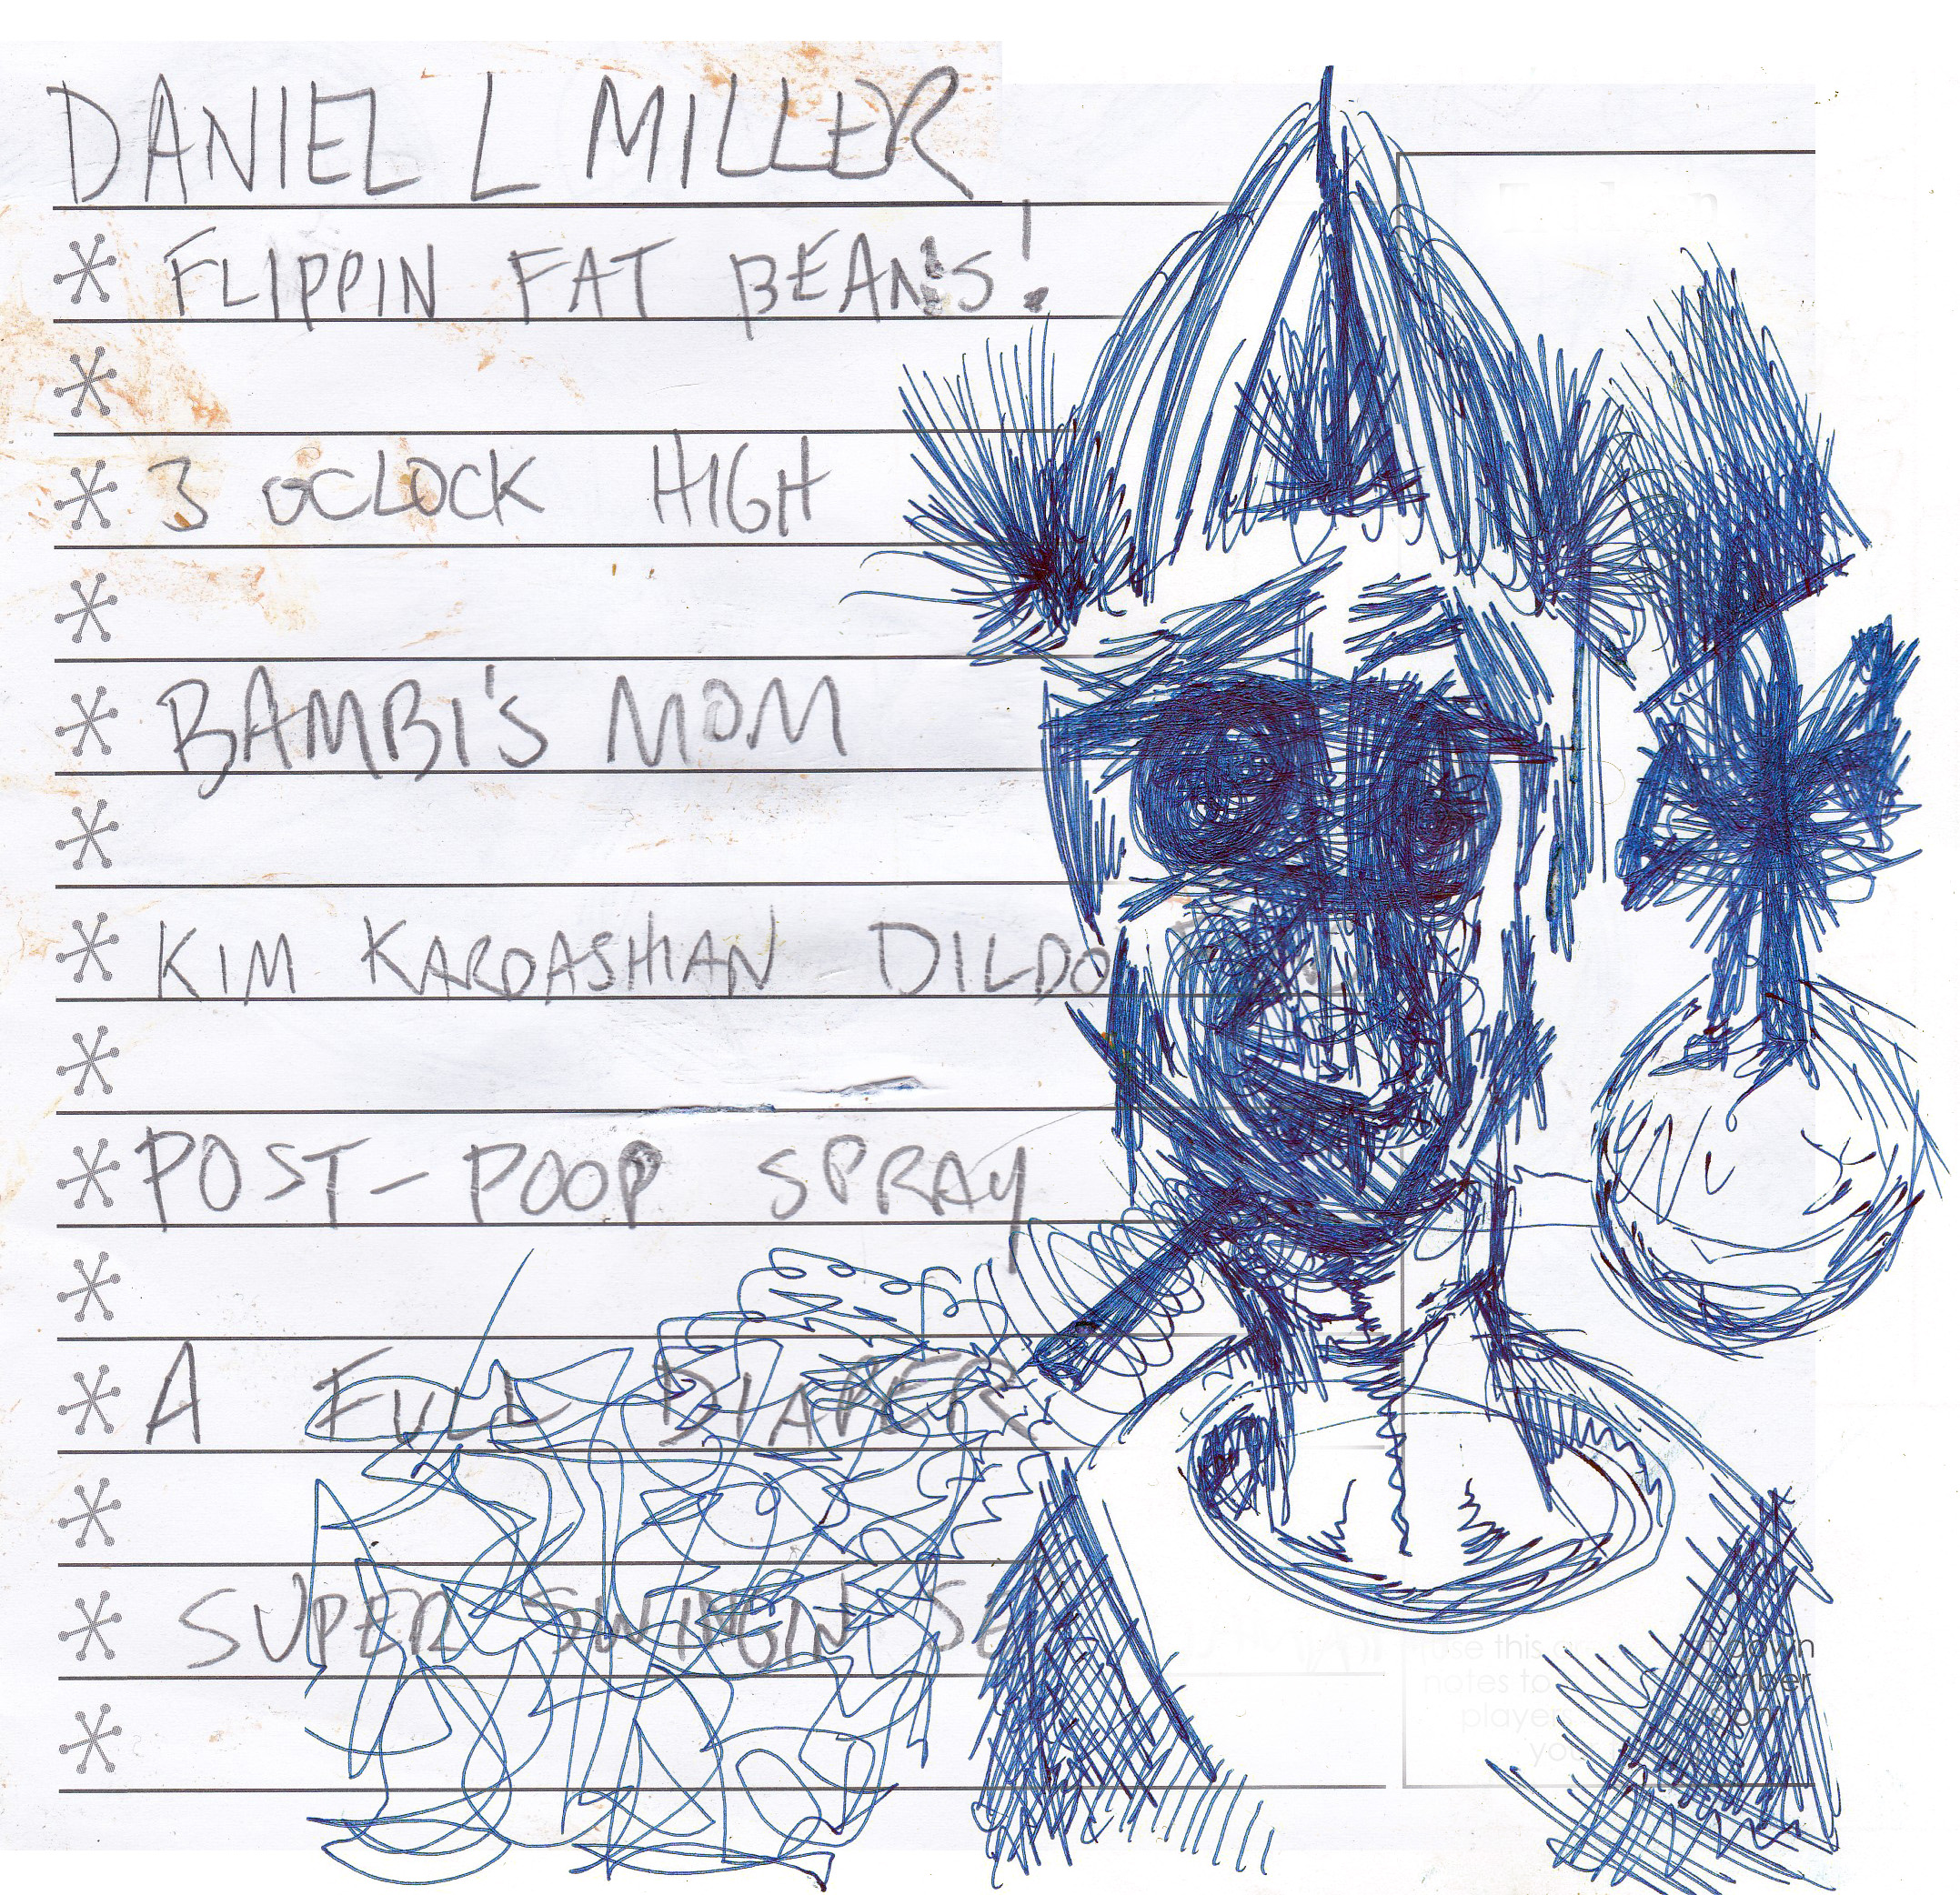 DANIEL L MILLER
FLIPPIN FAT BEANS!
3 OCLOCK HIGH
BAMBI'S MOM
KIM KARDASHIAN DILDO
POST-POOP SPRAY
A FULL DIAPER
SUPER SWINGIN
use this down
notes to
player